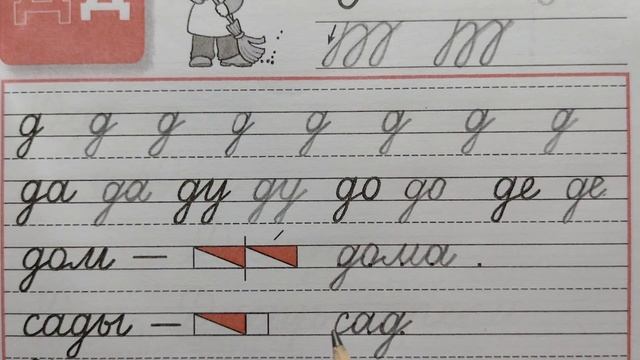 Д д
д д д д д д д д
да да ду ду до до де де
дом — дома .
сады — сад